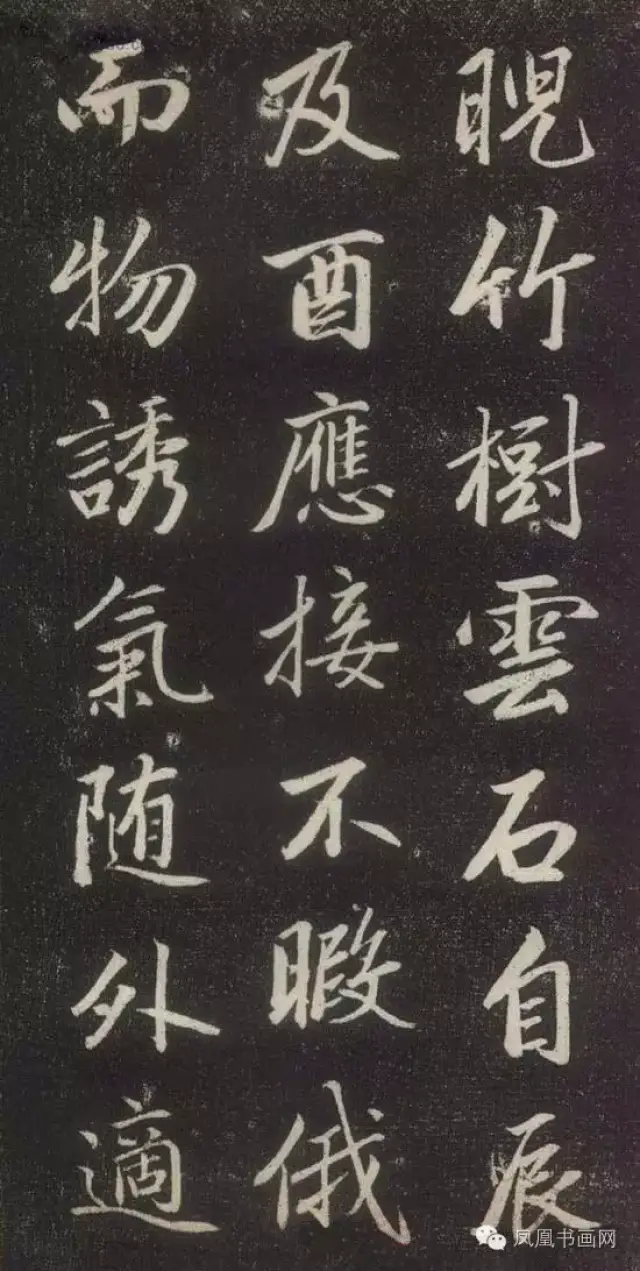 睨竹樹雲石自辰
及酉應接不暇俄
而物誘氣随外適
凤凰书画网